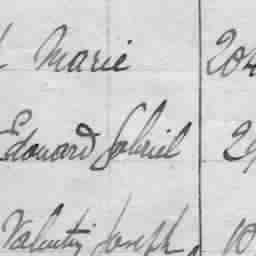 Marie 204
Edouard Gabriel 2
Valentin Joseph 10